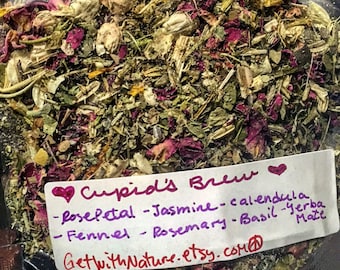 ♥ Cupid's Brew ♥
- Rose Petal - Jasmine - Calendula
- Fennel - Rosemary - Basil - Yerba Mate
GetWithNature.etsy.com